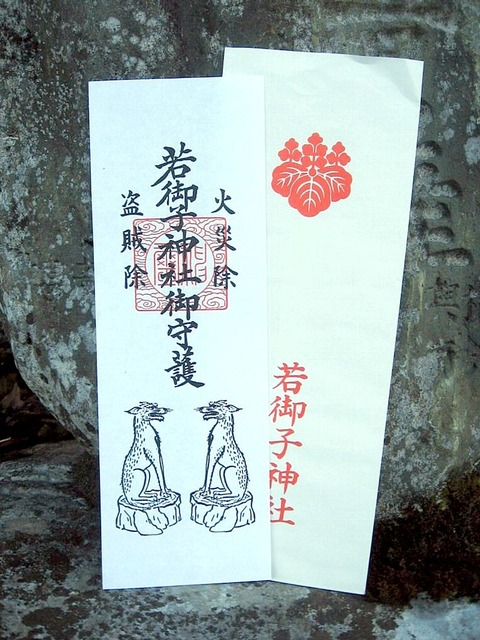 火災除
若御子神社御守護
盗賊除
若御子神社